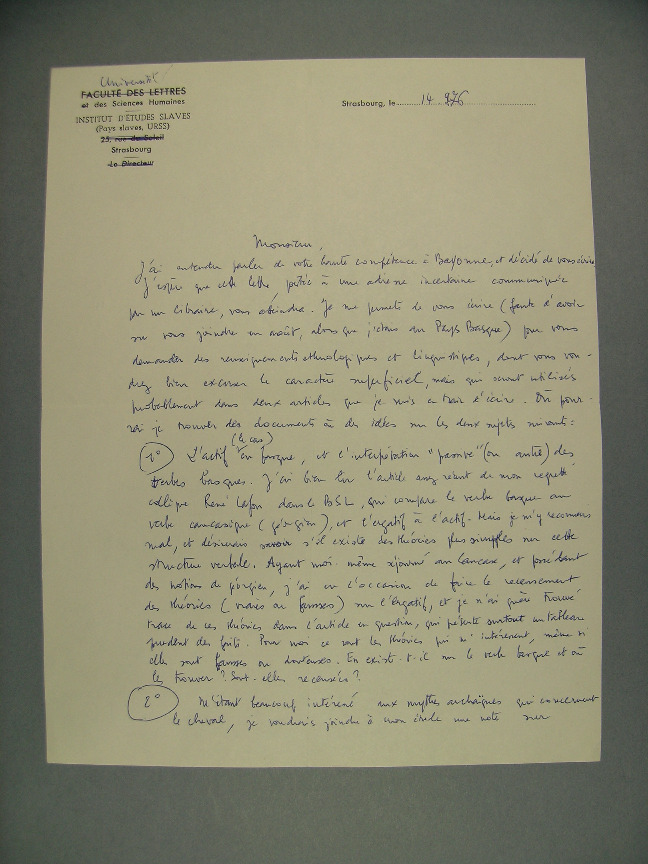 Université
FACULTÉ DES LETTRES
et des Sciences Humaines
INSTITUT D'ÉTUDES SLAVES
(Pays slaves, URSS)
25, rue du Soleil
Strasbourg
Le Directeur
Strasbourg, le 14 976
Monsieur,
J'ai entendu parler de votre haute compétence à Bayonne, et décidé de vous écrire
J'espère que cette lettre, postée à une adresse incertaine communiquée
par un libraire, vous atteindra. Je me permets de vous écrire (faute d'avoir
su vous joindre en août, alors que j'étais au Pays Basque) pour vous
demander des renseignements ethnologiques et linguistiques, dont vous vou-
drez bien excuser le caractère superficiel, mais qui seront utilisés
probablement dans deux articles que je suis en train d'écrire. Où pour-
rai-je trouver des documents ou des idées sur les deux sujets suivants:
1° L'actif (le cas) en basque, et l'interprétation "passive" (ou autre) des
verbes basques. J'ai bien lu l'article assez récent de mon regretté
collègue René Lafon dans le BSL, qui compare le verbe basque au
verbe caucasique (géorgien), et l'ergatif à l'actif. Mais je m'y reconnais
mal, et désirerais savoir s'il existe des théories plus simples sur cette
structure verbale. Ayant moi-même séjourné au Caucase, et possédant
des notions de géorgien, j'ai eu l'occasion de faire le recensement
des théories (vraies ou fausses) sur l'ergatif, et je n'ai guère trouvé
trace de ces théories dans l'article en question, qui présente surtout un tableau
prudent des faits. Pour moi ce sont les théories qui m'intéressent, même si
elles sont fausses ou douteuses. En existe-t-il sur le verbe basque et où
les trouver? Sont-elles recensées?
2° M'étant beaucoup intéressé aux mythes archaïques qui concernent
le cheval, je voudrais joindre à mon étude une note sur